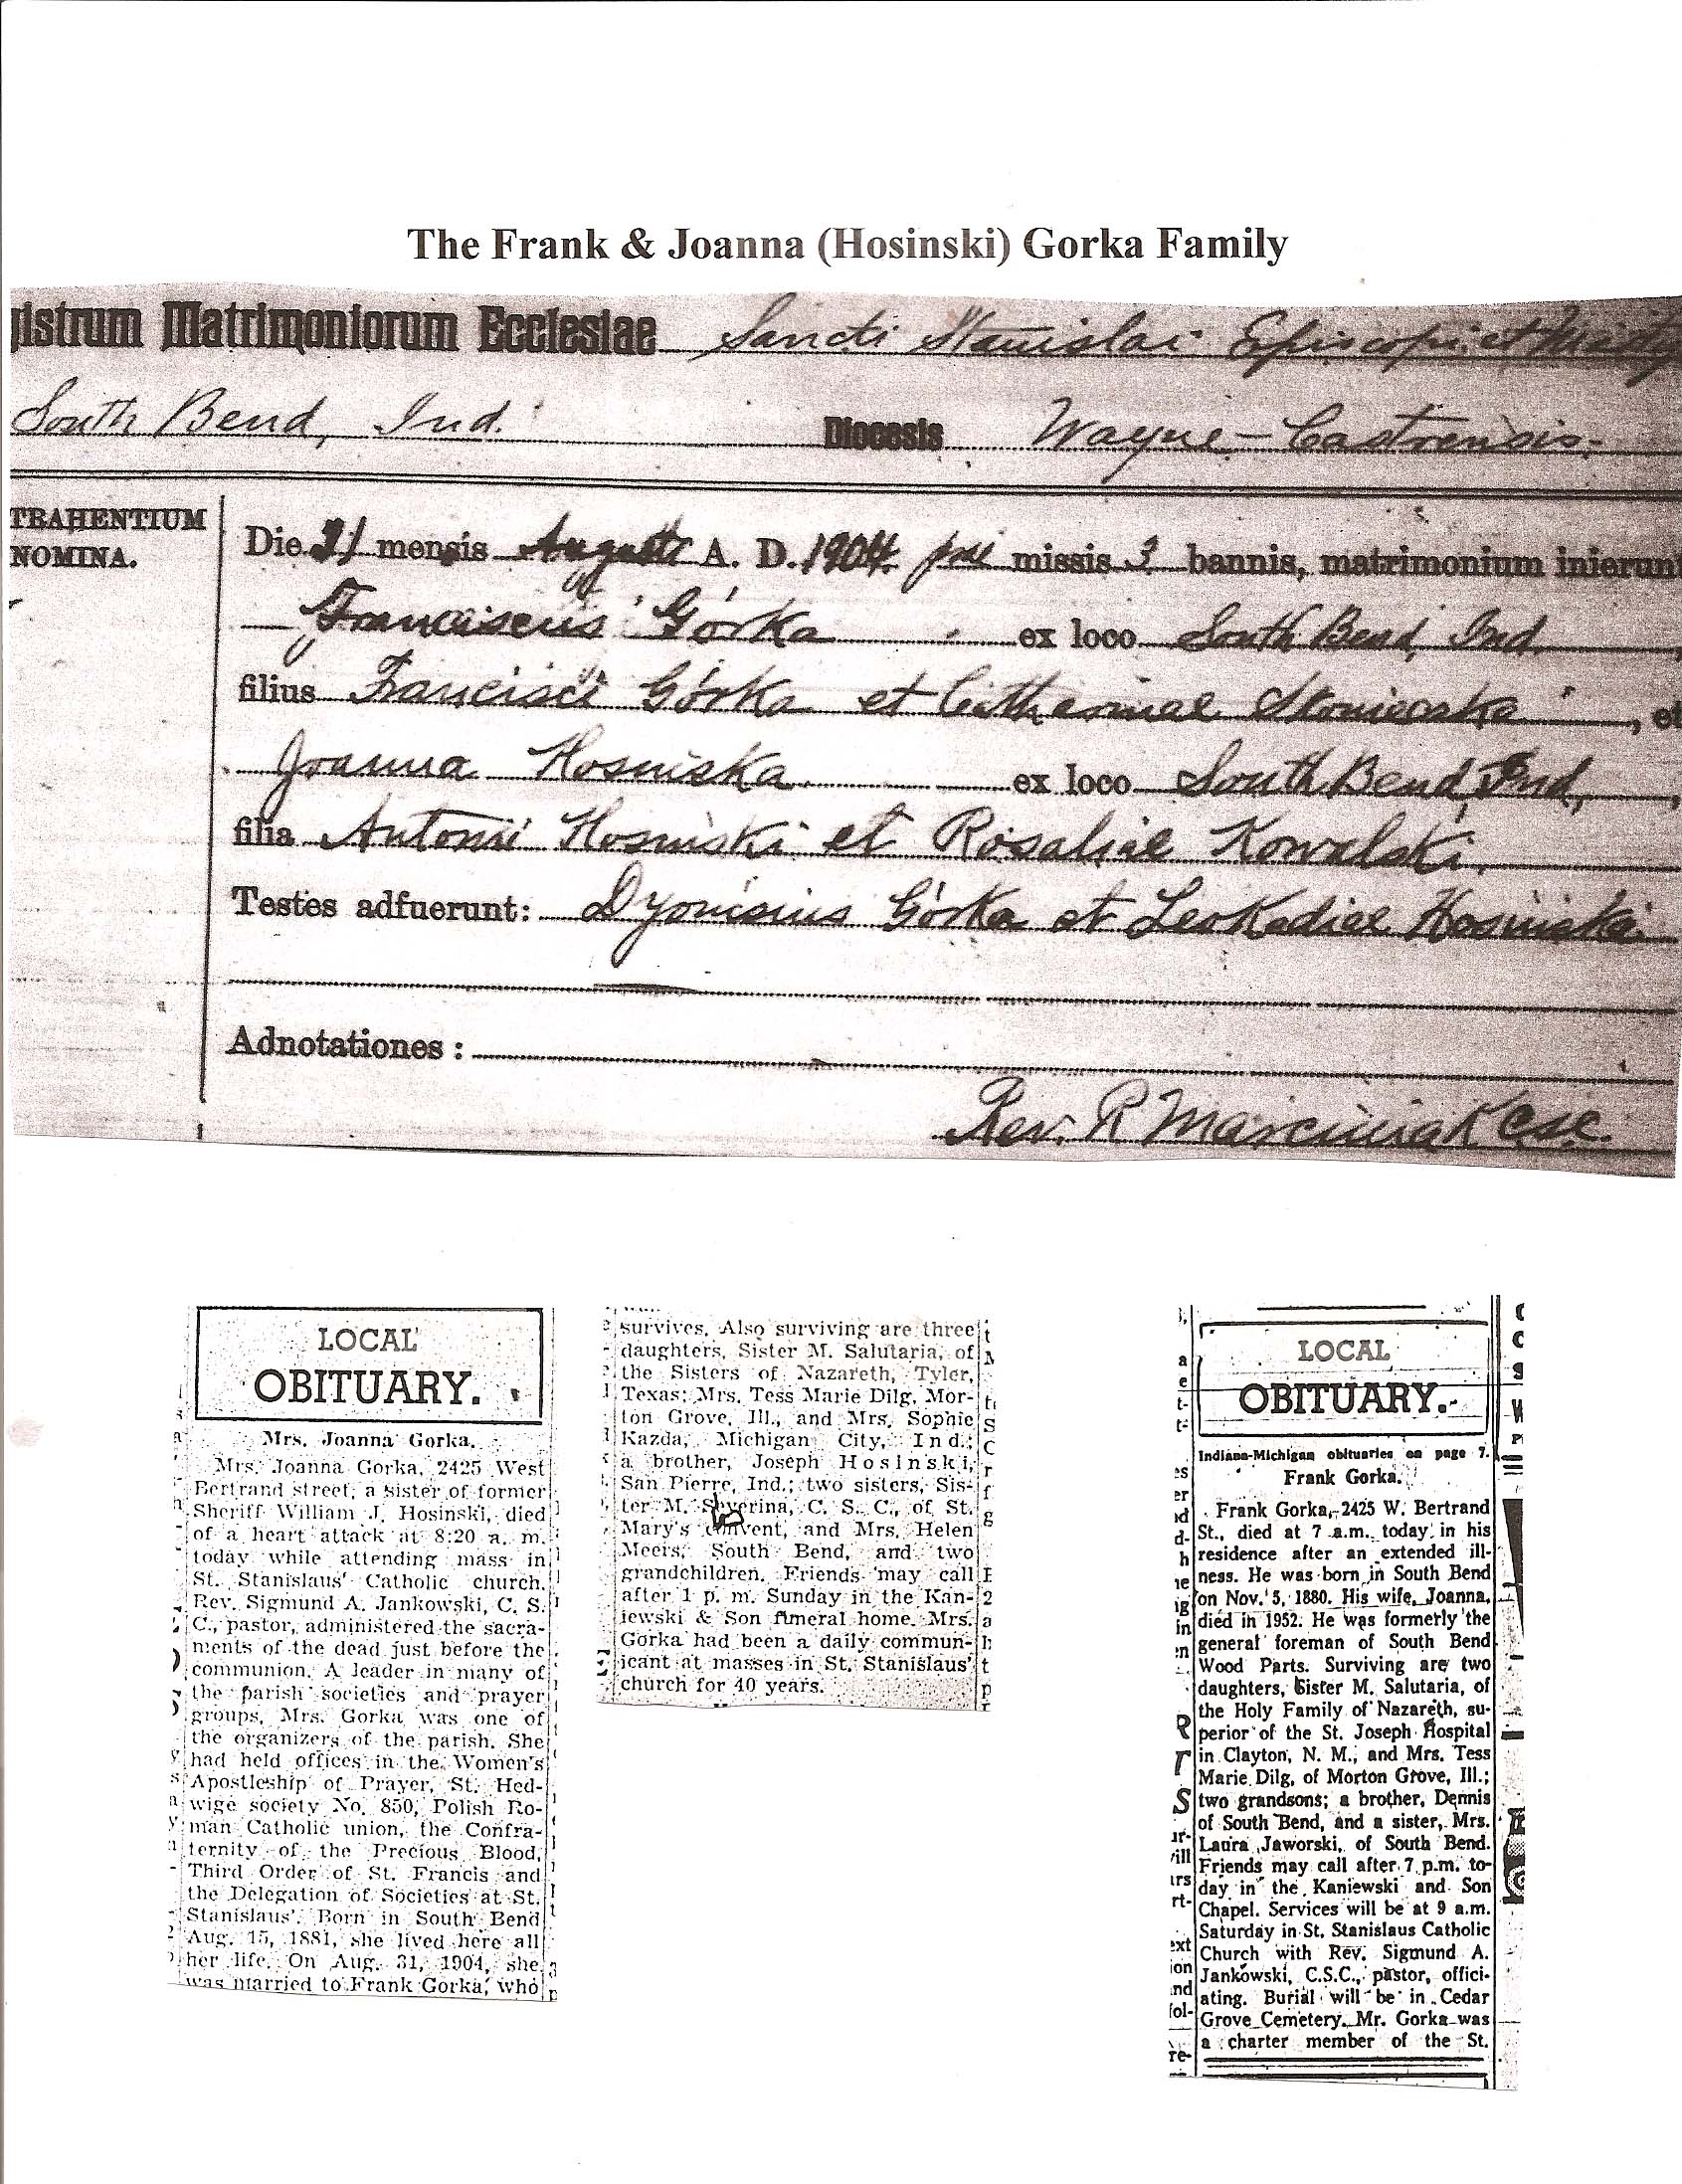 The Frank & Joanna (Hosinski) Gorka Family
gistrum Matrimoniorum Ecclesiae Sancti Stanislai Episcopi et
South Bend, Ind. Diocesis Wayne-Castrensis.
TRAHENTIUM
NOMINA.
Die 31 mensis Augusti A. D. 1904 missis 3 bannis, matrimonium inierunt
Franciscus Górka ex loco South Bend, Ind.
filius Francisci Górka et Catherinae , et
Joanna Hosinska ex loco South Bend, Ind.,
filia Antonii Hosinski et Rosaliae Kowalski.
Testes adfuerunt: Dyonisius Górka et Leokadiae Hosinska
Adnotationes :
Rev. R Marciniak CSC.
LOCAL
OBITUARY.
Mrs. Joanna Gorka.
Mrs. Joanna Gorka, 2425 West
Bertrand street, a sister of former
Sheriff William J. Hosinski, died
of a heart attack at 8:20 a. m.
today while attending mass in
St. Stanislaus' Catholic church.
Rev. Sigmund A. Jankowski, C. S.
C., pastor, administered the sacra-
ments of the dead just before the
communion. A leader in many of
the parish societies and prayer
groups, Mrs. Gorka was one of
the organizers of the parish. She
had held offices in the Women's
Apostleship of Prayer, St. Hed-
wige society No. 850, Polish Ro-
man Catholic union, the Confra-
ternity of the Precious Blood,
Third Order of St. Francis and
the Delegation of Societies at St.
Stanislaus'. Born in South Bend
Aug. 15, 1881, she lived here all
her life. On Aug. 31, 1904, she
was married to Frank Gorka, who
survives. Also surviving are three
daughters, Sister M. Salutaria, of
the Sisters of Nazareth, Tyler,
Texas; Mrs. Tess Marie Dilg, Mor-
ton Grove, Ill., and Mrs. Sophie
Kazda, Michigan City, Ind.;
a brother, Joseph Hosinski,
San Pierre, Ind.; two sisters, Sis-
ter M. Severina, C. S. C., of St.
Mary's convent, and Mrs. Helen
Meers, South Bend, and two
grandchildren. Friends may call
after 1 p. m. Sunday in the Kan-
iewski & Son funeral home. Mrs.
Gorka had been a daily commun-
icant at masses in St. Stanislaus'
church for 40 years.
LOCAL
OBITUARY.
Indiana-Michigan obituaries on page 7.
Frank Gorka.
Frank Gorka, 2425 W. Bertrand
St., died at 7 a.m. today in his
residence after an extended ill-
ness. He was born in South Bend
on Nov. 5, 1880. His wife, Joanna,
died in 1952. He was formerly the
general foreman of South Bend
Wood Parts. Surviving are two
daughters, Sister M. Salutaria, of
the Holy Family of Nazareth, su-
perior of the St. Joseph Hospital
in Clayton, N. M., and Mrs. Tess
Marie Dilg, of Morton Grove, Ill.;
two grandsons; a brother, Dennis
of South Bend, and a sister, Mrs.
Laura Jaworski, of South Bend.
Friends may call after 7 p.m. to-
day in the Kaniewski and Son
Chapel. Services will be at 9 a.m.
Saturday in St. Stanislaus Catholic
Church with Rev. Sigmund A.
Jankowski, C.S.C., pastor, offici-
ating. Burial will be in Cedar
Grove Cemetery. Mr. Gorka was
a charter member of the St.